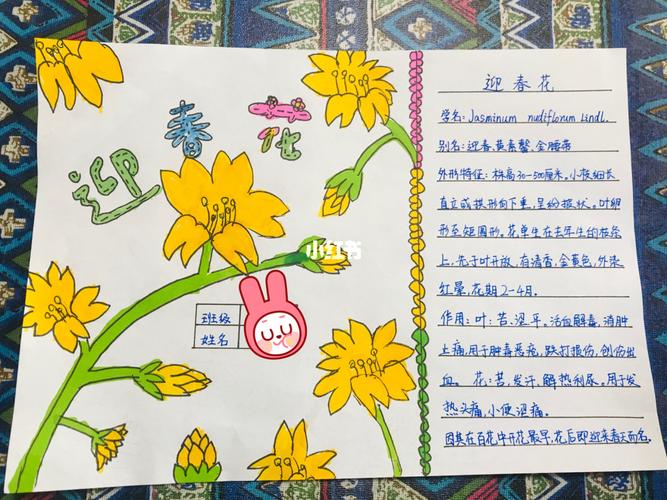 迎春花
小红书
班级
姓名
迎春花
学名:Jasminum nudiflorum Lindl.
别名:迎春、黄素馨、金腰带
外形特征:株高30-500厘米。小枝细长
直立或拱形向下垂,呈纷披状。叶卵
形至矩圆形。花单生在去年生的枝条
上,先于叶开放,有清香,金黄色,外染
红晕,花期2-4月。
作用:叶:苦、涩、平。活血解毒,消肿
止痛,用于肿毒恶疮,跌打损伤,创伤出
血。花:苦,发汗,解热利尿。用于发
热头痛,小便涩痛。
因其在百花中开花最早,花后即迎来春天而名。